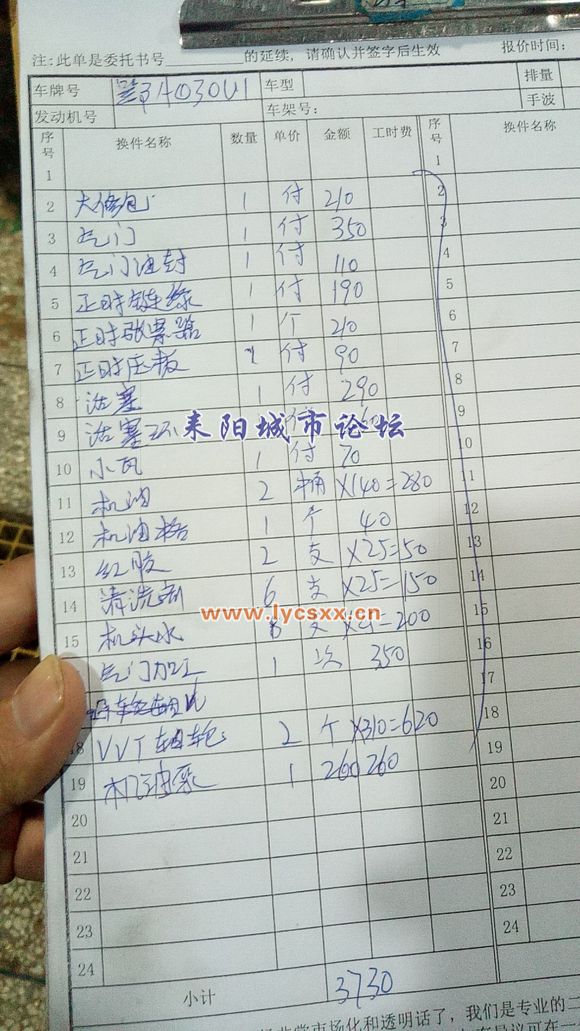 注：此单是委托书号________的延续，请确认并签字后生效 报价时间：
车牌号 A030U1 车型 排量
发动机号 车架号： 手波
序号 换件名称 数量 单价 金额 工时费 序号 换件名称
1 1
2 大修包 1 付 210 2
3 气门 1 付 350 3
4 气门油封 1 付 110 4
5 正时链条 1 付 190 5
6 正时张紧器 1 个 210 6
7 正时压板 付 90 7
8 活塞 1 付 290 8
9 活塞环 9
耒阳城市论坛
10 小瓦 1 付 70 10
11 机油 2 桶 X140=280 11
12 机油格 1 个 40 12
13 红胶 2 支 X25=50 13
14 清洗剂 6 支 X25=150 14
www.lycsxx.cn
15 机头水 8 支 =200 15
气门加工 1 次 350 16
17
18 VVT 轮 2 个 X310=620 18
19 机油泵 1 260 260 19
20 20
21 21
22 22
23 23
24 24
小计 3730
市场化和透明话了，我们是专业的二